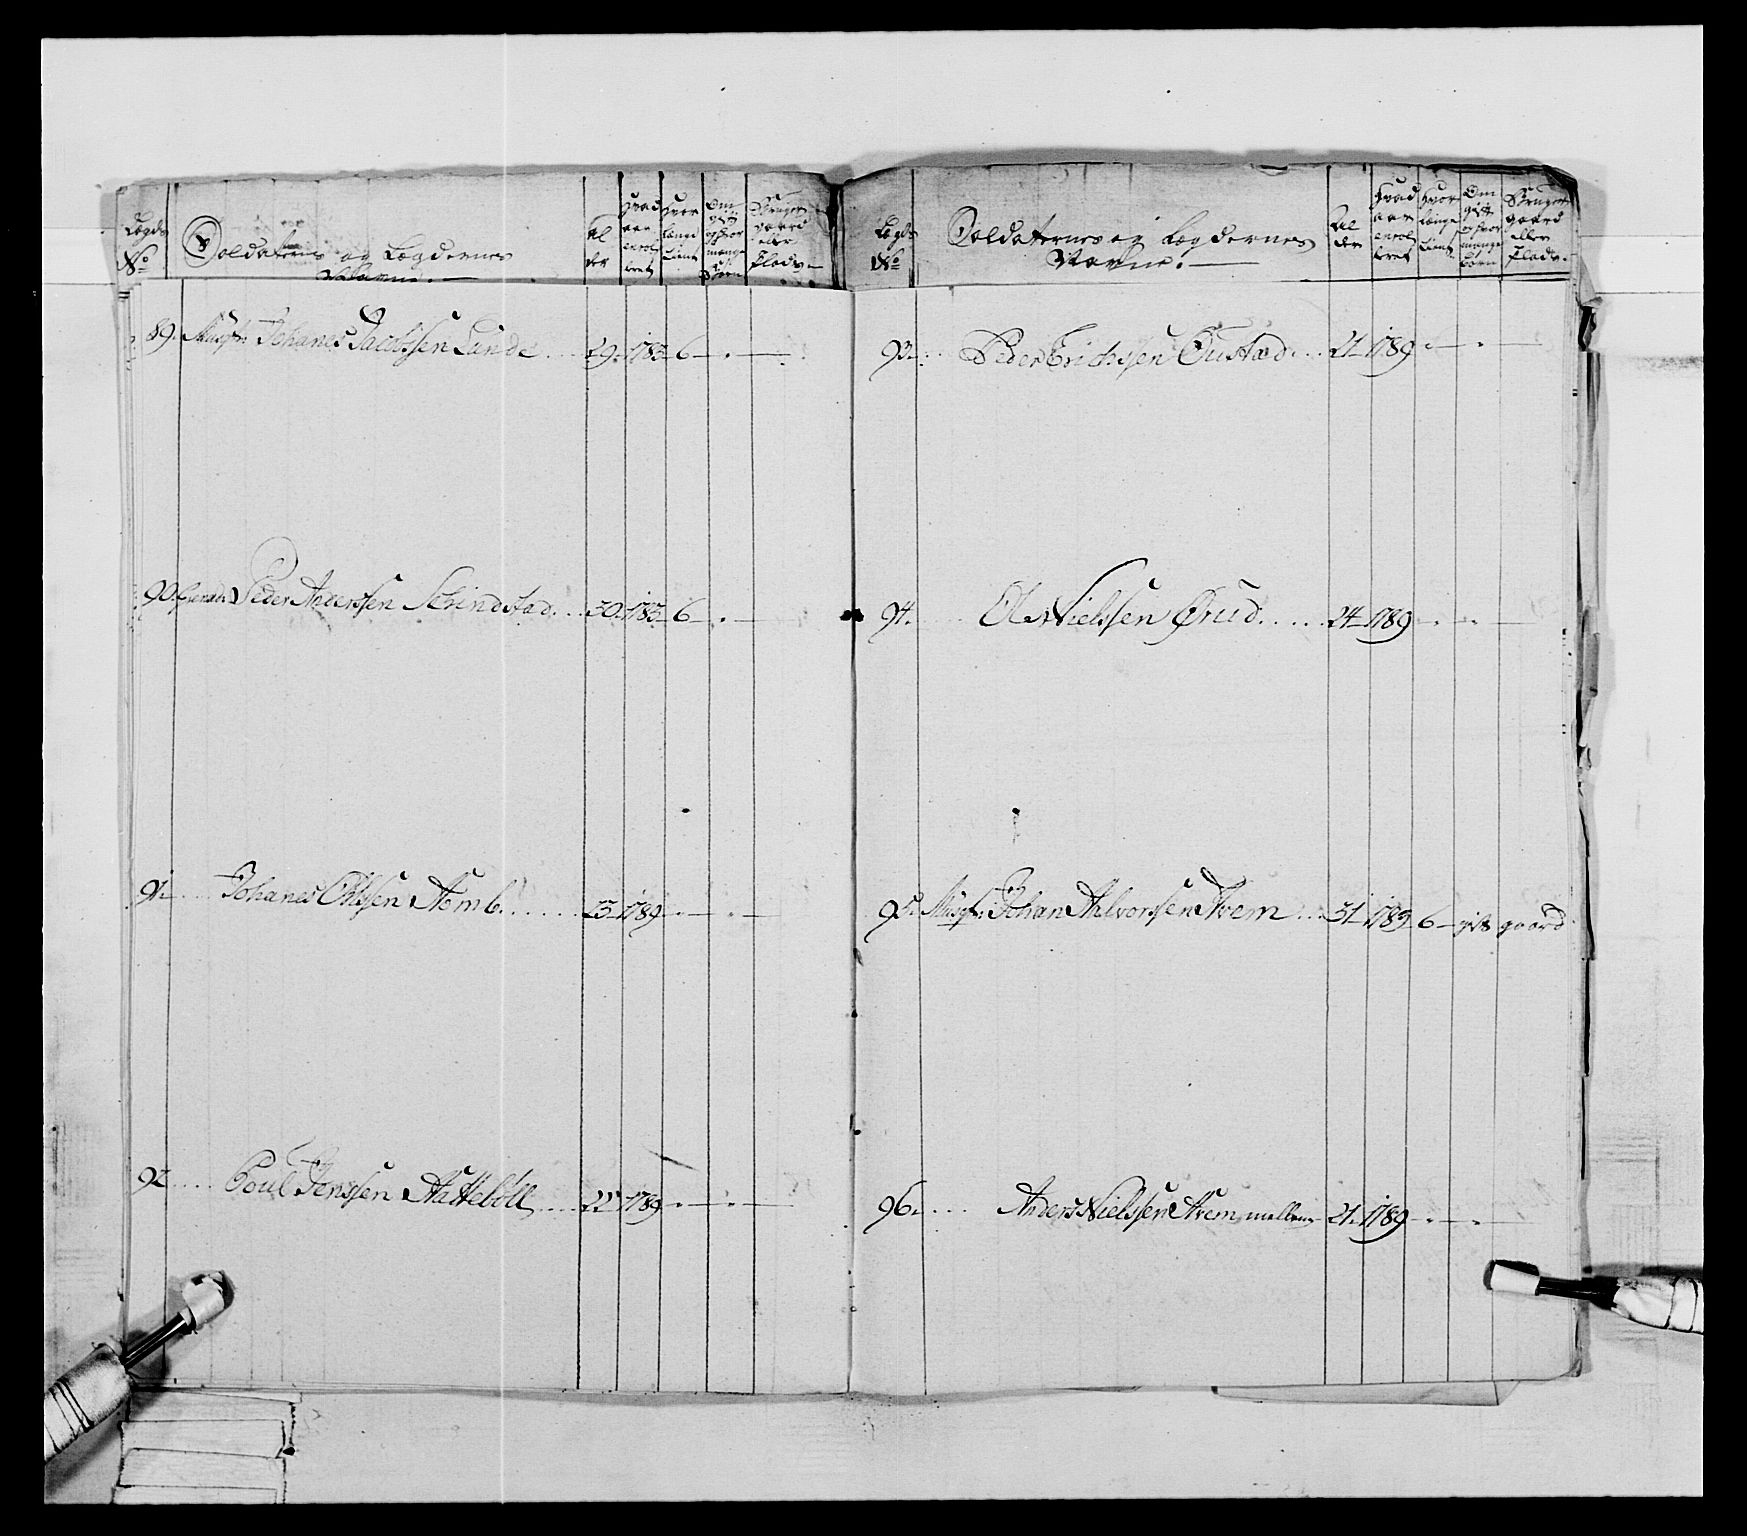 Lægds No
Soldaternes og Lægdernes Navne.
Al der
Hvad aar enrol leret
Hvor længe tient
Om gift og hvor mange Børn
Bruger gaard eller Plads
89. Musqt: Johanes Jacobssen Lunde 29. 1783 6
90. Peder Anderssen Schindstad 30. 1783 6
91. Johanes Olssen 23 1789
92. Poul Jenssen 22 1789
Lægds No
Soldaternes og Lægdernes Navne.
Al der
Hvad aar enrol leret
Hvor længe tient
Om gift og hvor mange Børn
Bruger gaard eller Plads.
93. Peder Erichssen Oustad 21 1789
94. Ole Nielssen Ørud 24 1789
95. Musqt: Johan Ahlvorssen 31 1783 6 gift gaard
96. Anders Nielssen mellem 21. 1789